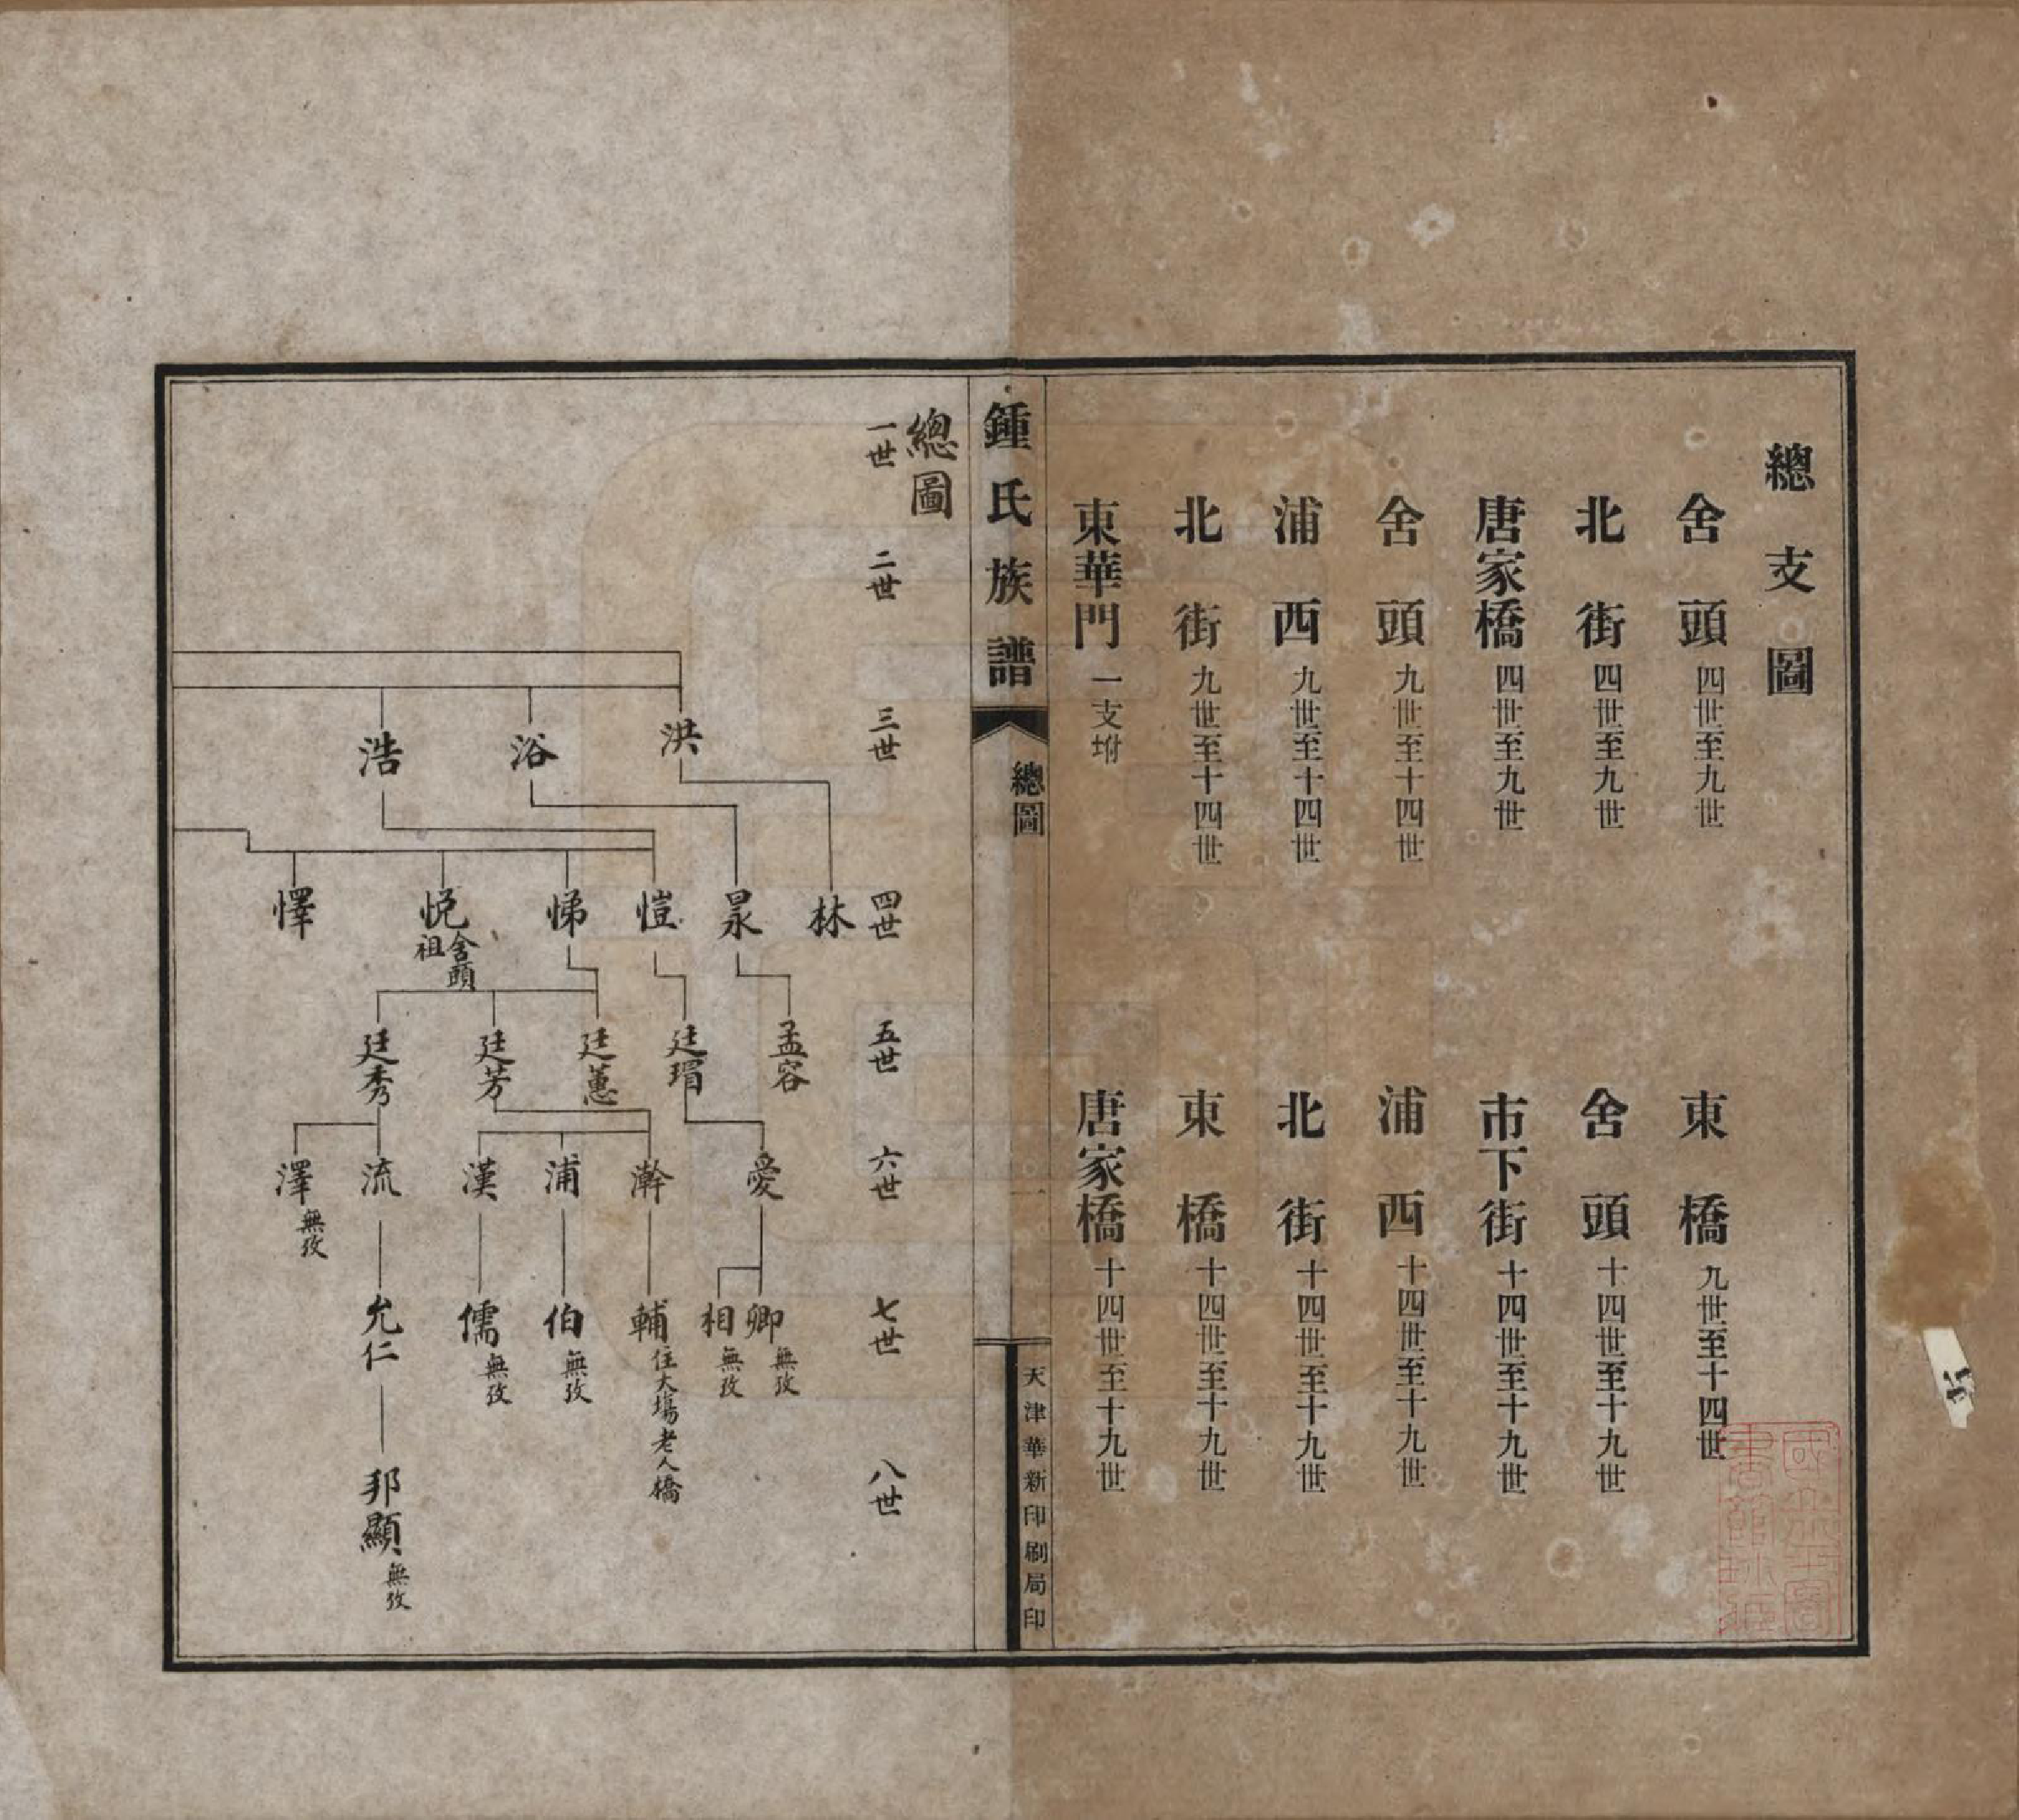 總支圖
舍頭 四世至九世
東橋 九世至十四世
北街 四世至九世
舍頭 十四世至十九世
唐家橋 四世至九世
市下街 十四世至十九世
舍頭 九世至十四世
浦西 十四世至十九世
浦西 九世至十四世
北街 十四世至十九世
北街 九世至十四世
東橋 十四世至十九世
東華門 一支坿
唐家橋 十四世至十九世
鍾氏族譜
總圖
一
天津華新印刷局印
總圖
一世
二世
三世
四世
五世
六世
七世
八世
洪
浴
浩
林
杲
愷
悌
悦 舍頭祖
懌
孟容
廷瑁
廷蕙
廷芳
廷秀
愛
澣
浦
漢
流
澤 無攷
卿 無攷
相 無攷
輔 住大塲老人橋
伯 無攷
儒 無攷
允仁
邦顯 無攷